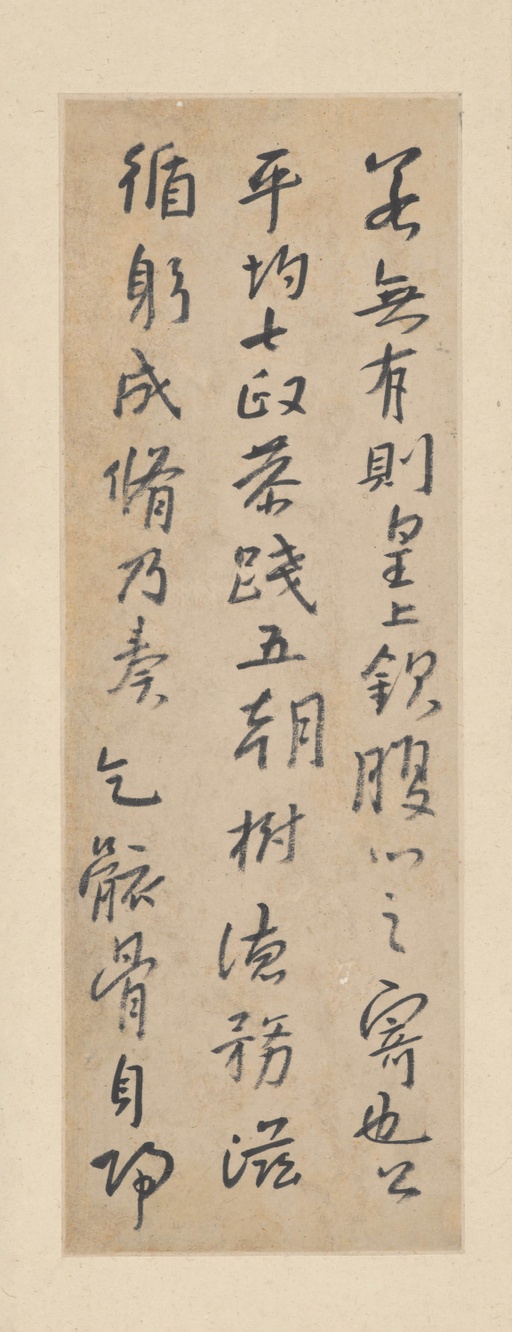 若無有則皇上欽腹心之寄也公
平均七政荼踐五朝樹德務滋
循躬成脩乃奏乞骸骨自歸